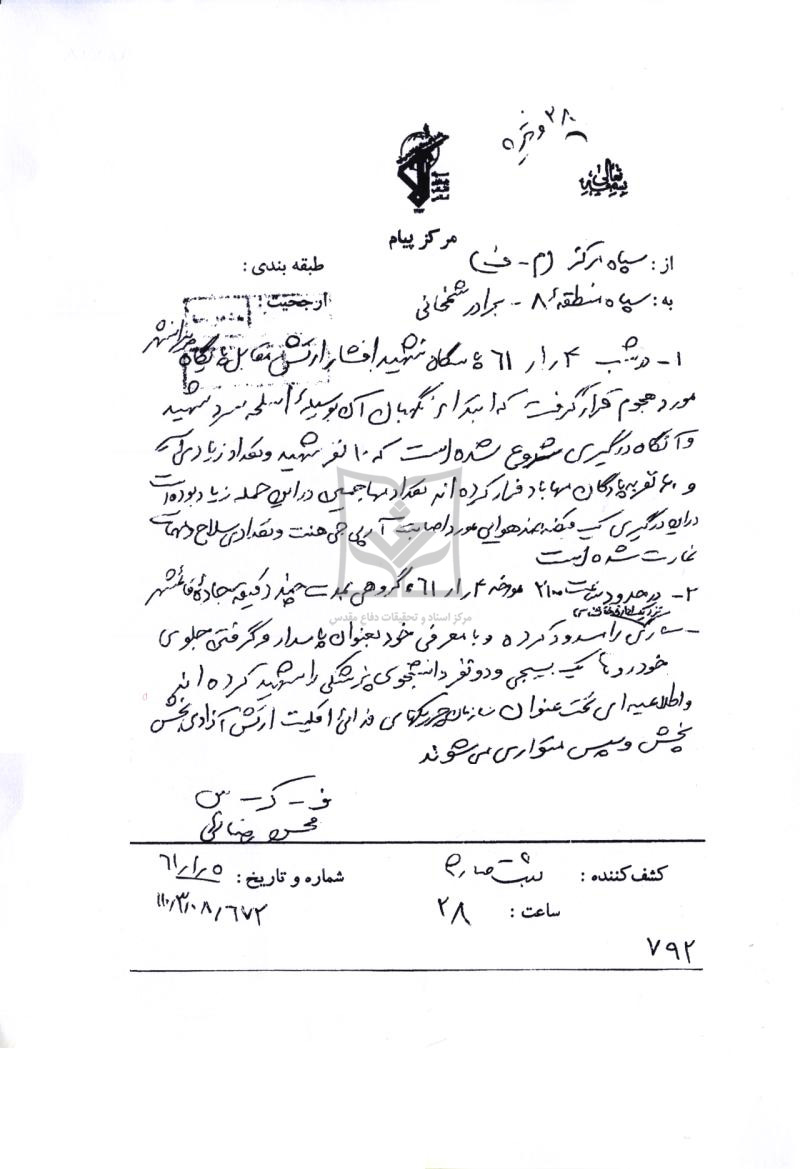 ۳۸ و تیره
بسمه تعالی
مرکز پیام
از : سپاه مرکز (م - ف) طبقه بندی :
به : سپاه منطقه ۸ - برادر شمخانی ارجحیت :
۱- در شب ۴ر۱ر۶۱ پاسگاه شهید افشار ارتش مقابل پایگاه
مورد هجوم قرار گرفت که ابتدا نگهبان آن بوسیله اسلحه سرد شهید
و آنگاه درگیری شروع شده است که ۱۰ نفر شهید و تعداد زیادی
و ۶۰ نفر به پادگان مهاباد فرار کرده اند تعداد مهاجمین در این حمله زیاد بوده است
در این درگیری یک قبضه ضد هوایی مورد اصابت آر پی جی هفت و تعدادی سلاح و مهمات
غارت شده است
۲- در حدود ساعت ۲۱۰۰ مورخه ۴ر۱ر۶۱ گروهی بمدت چند دقیقه جاده قائمشهر
- ساری را مسدود کرده و با معرفی خود بعنوان پاسدار و گرفتن جلوی
خودروها یک بسیجی و دو نفر دانشجوی پزشکی را شهید کرده اند
و اطلاعیه ای تحت عنوان سازمان چریکهای فدائی اقلیت ارتش آزادی بخش
پخش و سپس متواری می شوند
ف - ک - س
محسن رضائی
کشف کننده : شماره و تاریخ : ۵ر۱ر۶۱
ساعت : ۲۸ ۱۱۰/۳/۰۸/۶۷۲
۷۹۲
مرکز اسناد و تحقیقات دفاع مقدس